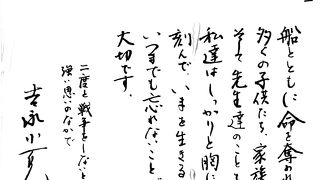 船とともに命を奪われ
多くの子供たち、家族
そして先生達のことを
私達はしっかりと胸に
刻んで、いまを生きる
いつまでも忘れないこと
大切です。
二度と戦争をしないと
強い思いのなかで
吉永小百合